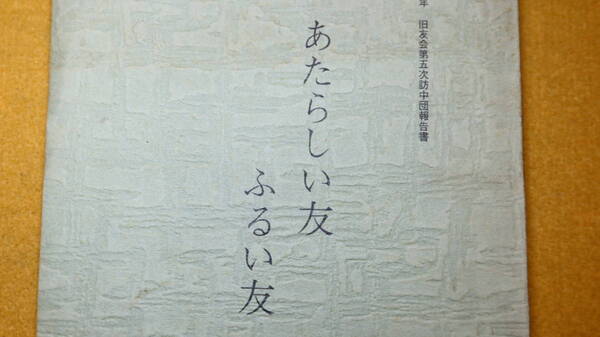 年 旧友会第五次訪中団報告書
あたらしい友
ふるい友